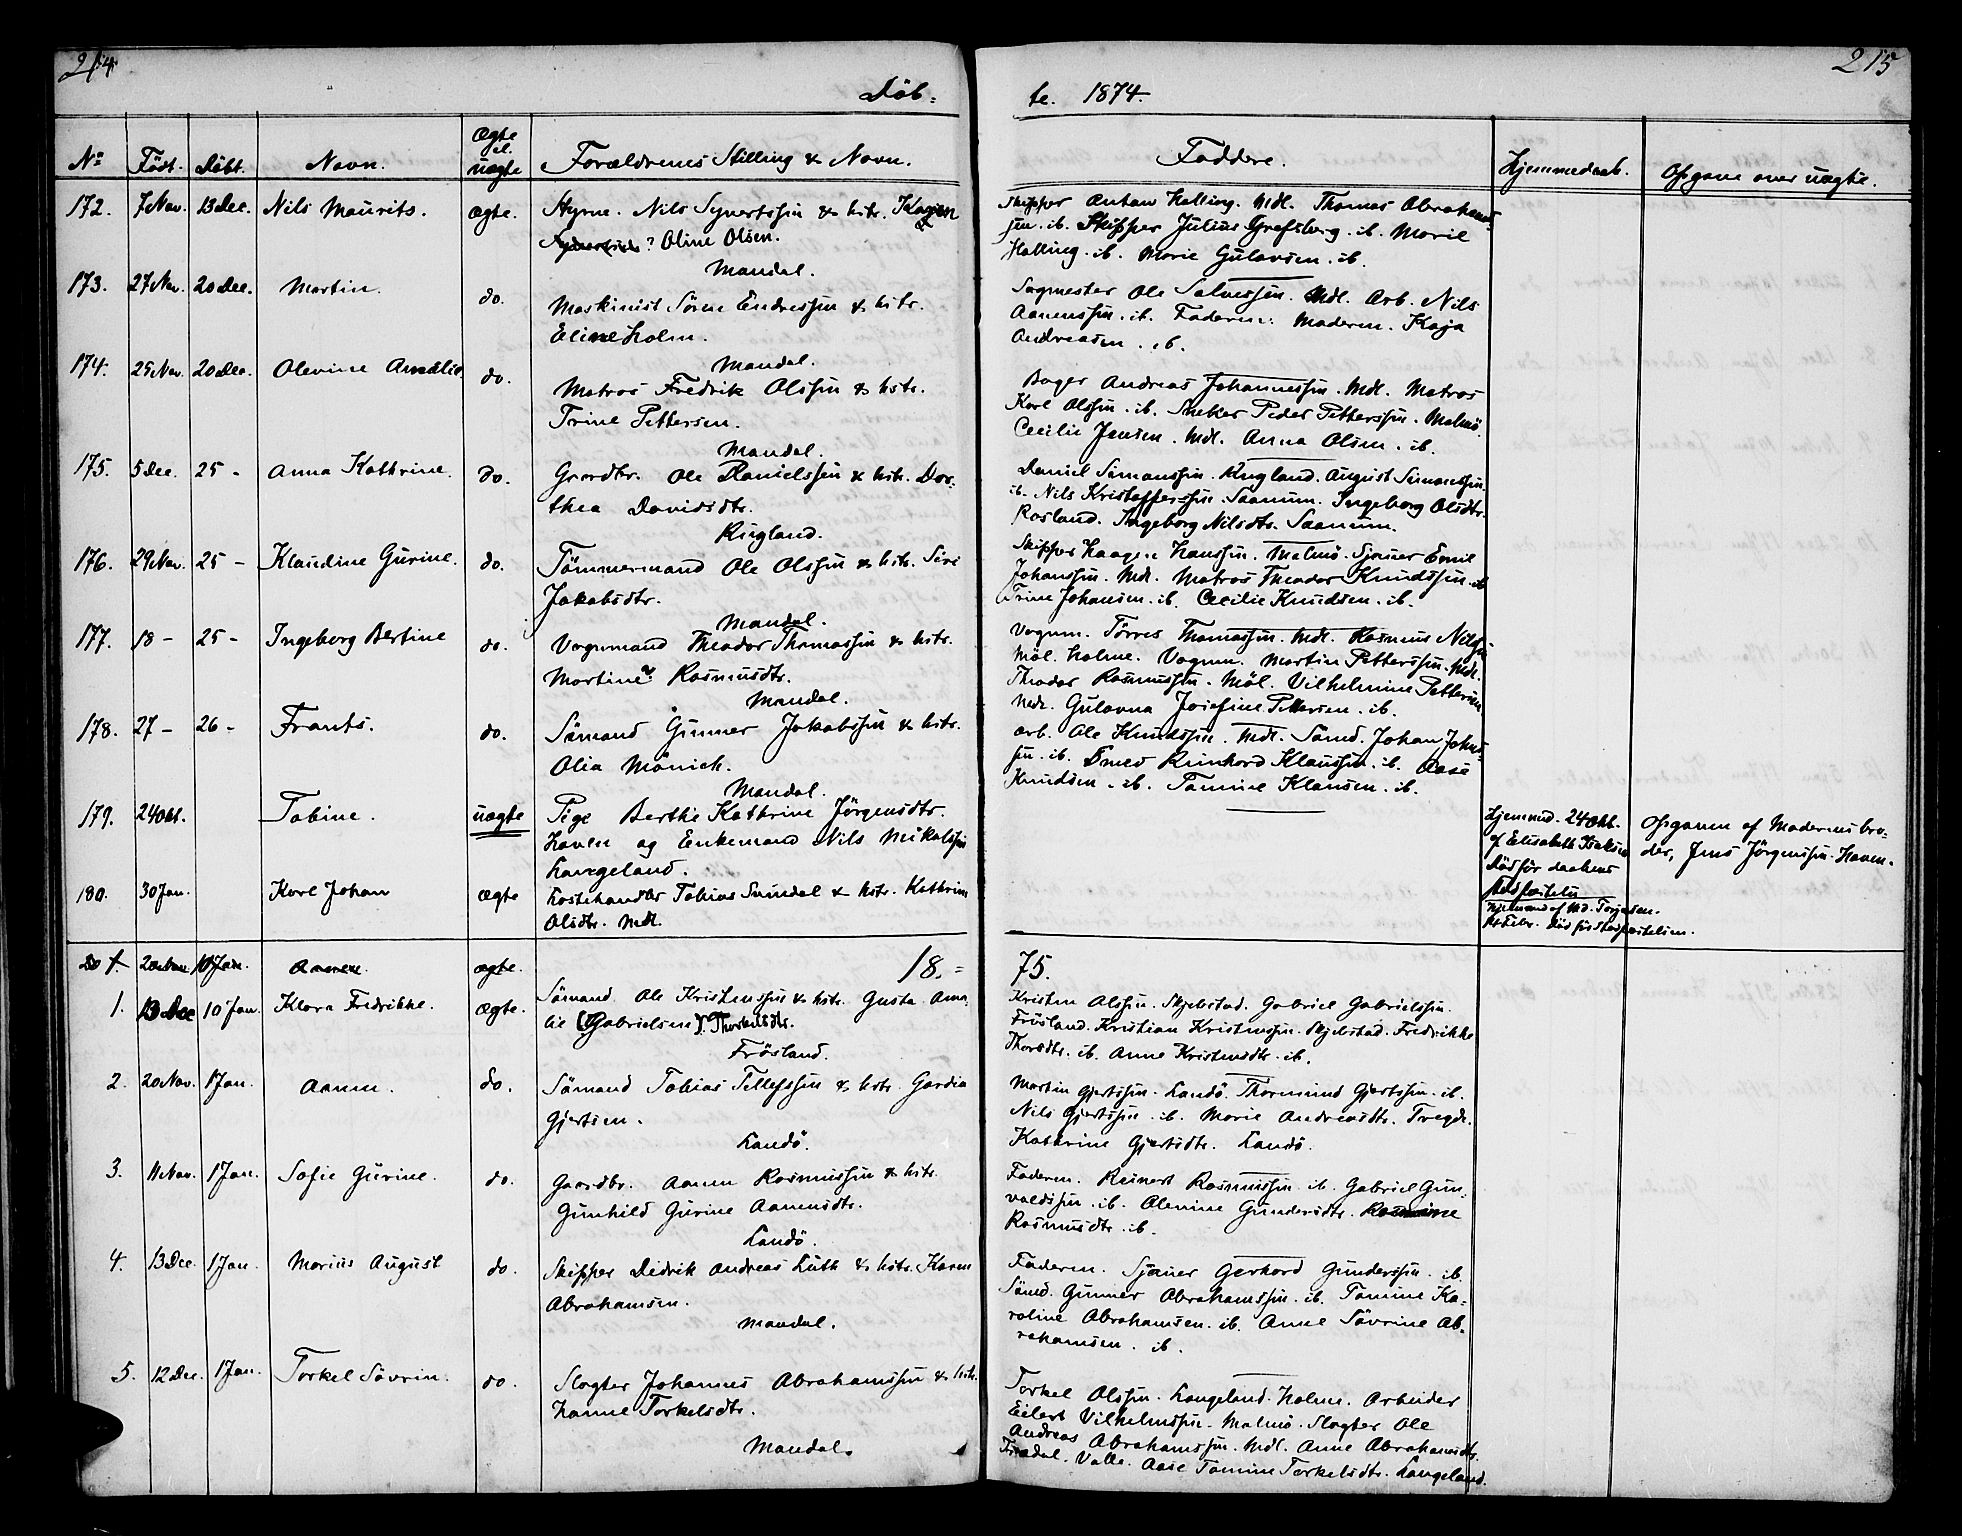 214
215
Döb-
te. 1874.
No Født. Döbt. Navn. Ægte el. uægte Forældrenes Stilling & Navn.
Faddere. Hjemmedaab. Opgave over uægte.
172. 7 Nov. 13 Dec. Nils Maurits. ægte. Styrm. Nils Syvertssen & hstr. Karen
? Oline Olsen.
Mandal.
Skipper Anton Halling. Mdl. Thomas Abrahams-
sen. ib. Skipper Julius Grefsberg. ib. Marie
Halling. ib. Marie Gulavsen. ib.
173. 27 Nov. 20 Dec. Martin. do. Maskinist Sören Endressen & hstr.
Eline Holm.
Mandal.
Sagmester Ole Salvessen. Mdl. Arb. Nils
Aanenssen. ib. Faderen. Moderen. Kaja
Andreasen. ib.
174. 25 Nov. 20 Dec. Olevine Amalia do. Matros Fredrik Olssen & hstr.
Trine Pettersen.
Mandal.
Bager Andreas Johannessen. Mdl. Matros
Karl Olssen. ib. Sneker Peder Petterssen. Malmö.
Cecilie Jensen. Mdl. Anna Olsen. ib.
175. 5 Dec. 25 - Anna Kathrine. do. Gaardbr. Ole Danielssen & hstr. Dor-
thea Davidsdtr.
Ringland.
Daniel Simonssen. Ringland. August Simonssen.
ib. Nils Kristofferssen. Saanum. Ingeborg Olsdtr.
Rosland. Ingeborg Nilsdtr. Saanum.
176. 29 Nov. 25 - Klaudine Gurine. do. Tömmermand Ole Olssen & hstr. Siri
Jakobsdtr.
Mandal.
Skipper Haagen Hanssen. Malmö. Sjauer Emil
Johanssen. Mdl. Matros Theodor Knudssen. ib
Trine Johansen. ib. Cecilie Knudsen. ib.
177. 18 - 25 - Ingeborg Bertine do. Vognmand Theodor Thomassen & hstr.
Martine Rasmusdtr.
Mandal.
Vognm. Törres Thomassen. Mdl. Rasmus Nilssen
Möl. Holme. Vognm. Martin Petterssen. Mdl.
Theodor Rasmussen. Möl. Vilhelmine Pettersen
Mdl. Gulavna Josefine Pettersen. ib.
178. 27 - 26 - Frants. do. Sömand Gunner Jakobssen & hstr.
Olia Mönich.
Mandal.
Arb. Ole Knudssen. Mdl. Sömd. Johan Johns-
sen. ib. Smed Reinhard Klaussen. ib. Aase
Knudsen. ib. Tamine Klausen. ib.
179. 24 Okt. Tobine. uægte Pige Berthe Kathrine Jörgensdtr.
Haven og Enkemand Nils Mikalssen
Langeland.
Hjemmed. 24 Okt.
af Elisabeth Isaksen
Död før daabens
Stadfæstelse
Opgaven af Moderens bro-
der, Jens Jörgenssen. Haven.
180. 30 Jan. Karl Johan ægte Hostehandler Tobias Suindal & hstr. Kathrine
Olsdtr. Mdl.
Hjemmed af Md. Torjesen.
Död før Stadfæstelsen.
1. 20 Nov. 10 Jan. Aanen. ægte. 18-
75.
1. 13 Dec 10 Jan. Klara Fredrikke. ægte. Sömand Ole Kristenssen & hstr. Gusta Ama-
lie (Gabrielsen). Thorsdtr.
Frösland.
Kristen Olssen. Skjebstad. Gabriel Gabrielssen.
Frösland. Kristian Kristenssen. Skjebstad. Fredrikke
Thorsdtr. ib. Anne Kristensdtr. ib.
2. 20 Nov. 1 Jan. Aanen. do. Sömand Tobias Tellefssen & hstr. Gardia
Gjertsen.
Landö.
Martin Gjertssen. Landö. Thormund Gjertssen. ib.
Nils Gjertssen. ib. Marie Andreasdtr. Tregde.
Kathrine Gjertsdtr. Landö.
3. 11 Nov. 1 Jan. Sofie Gurine. do. Gaardbr. Aanen Rasmussen & hstr.
Gunhild Gurine Aanensdtr.
Landö.
Faderen. Reinert Rasmussen ib. Gabriel Gun-
valdssen. ib. Olenine Gundersdtr. Rasmine
Rasmusdtr. ib.
4. 13 Dec. 1 Jan. Marius August do. Skipper Didrik Andreas Luth & hstr. Karen
Abrahamsen.
Mandal.
Faderen. Sjauer Gerhard Gunderssen. ib.
Sömd. Gunner Abrahamssen. ib. Tamine Ka-
roline Abrahamsen. ib. Anne Sövrine Ab-
rahamsen. ib.
5. 12 Dec. 1 Jan. Torkel Sövrin. do. Slagter Johannes Abrahamssen & hstr.
Hanne Torkelsdtr.
Mandal.
Torkel Olssen. Langeland. Holme. Arbeider
Eilert Vilhelmssen. Malmö. Slagter Ole
Andreas Abrahamssen. Mdl. Anne Abrahamsdtr.
Valle. Aase Tamine Torkelsdtr. Langeland.